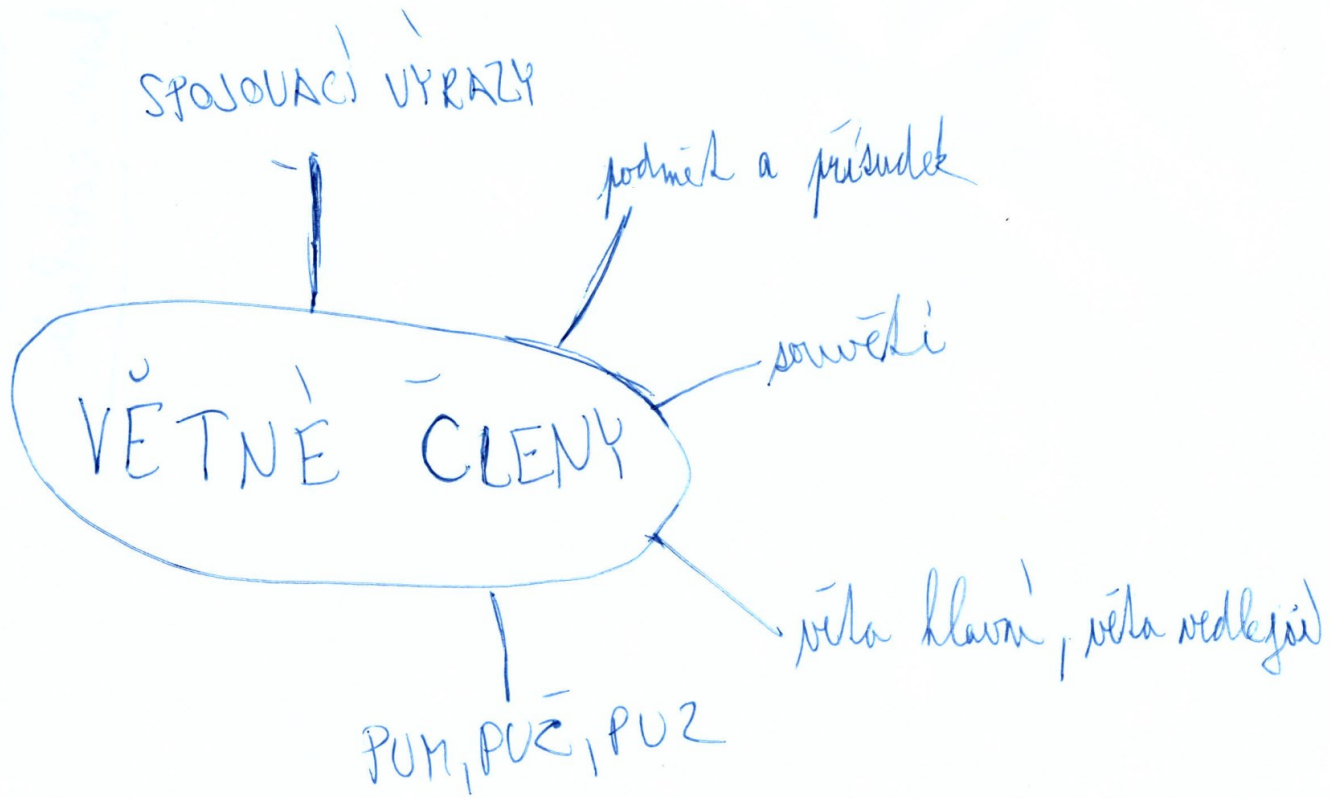 SPOJOVACÍ VÝRAZY
podmět a přísudek
souvětí
VĚTNÉ ČLENY
věta hlavní, věta vedlejší
PUM, PUČ, PUZ